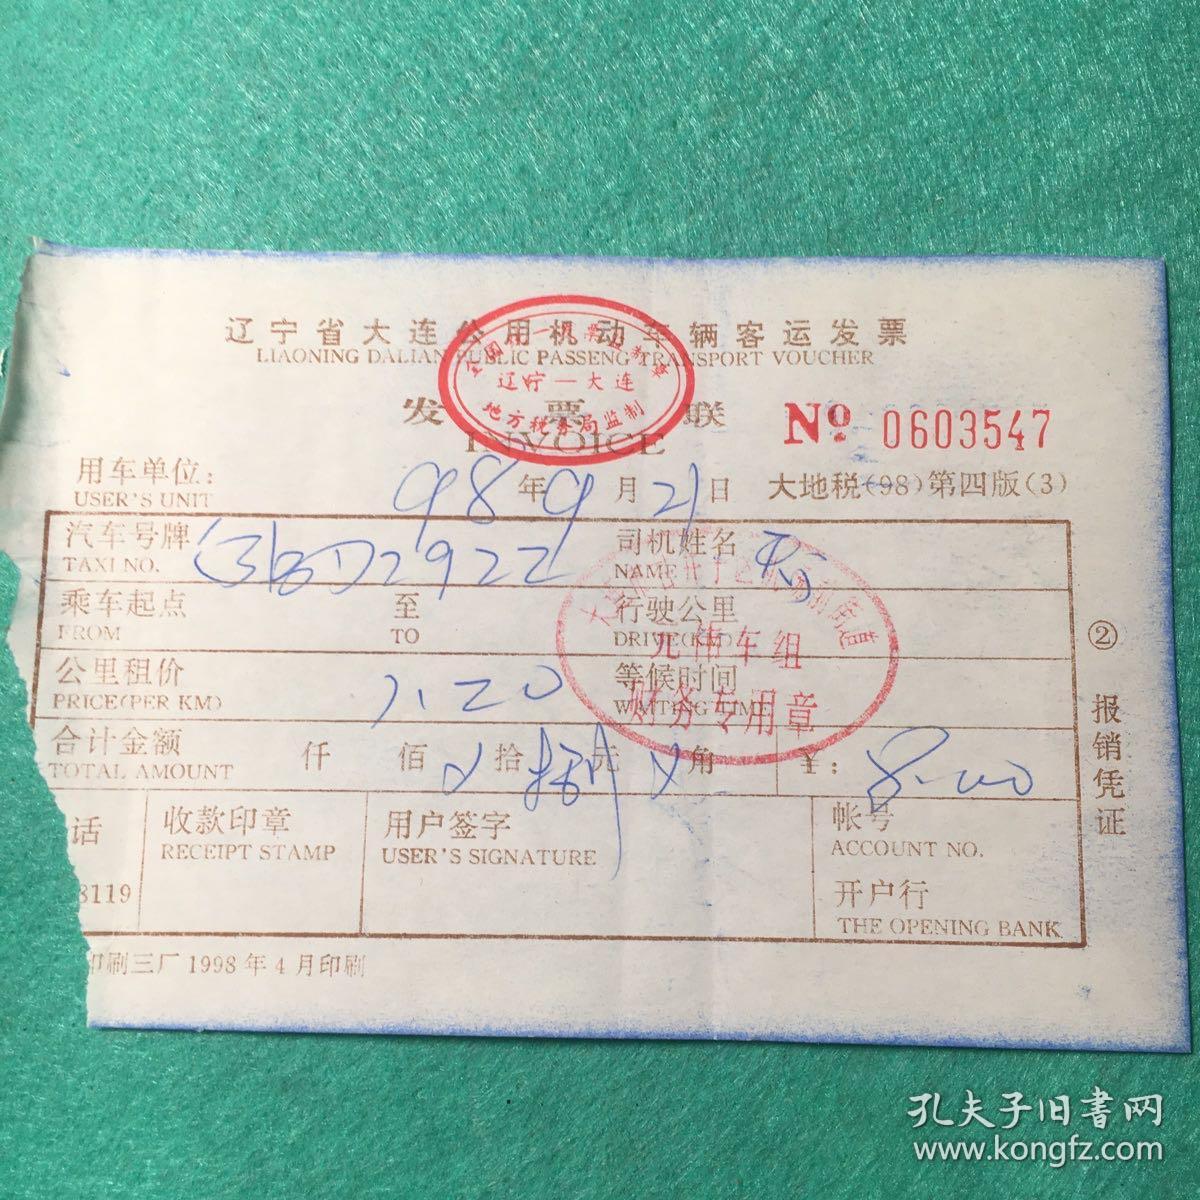 辽宁省大连公用机动车辆客运发票
LIAONING DALIAN PUBLIC PASSENG TRANSPORT VOUCHER
全国统一发票监制章
辽宁—大连
地方税务局监制
发票联
INVOICE
№ 0603547
用车单位:
USER'S UNIT
98年9月21日
大地税(98)第四版(3)
汽车号牌
TAXI NO.
BD2922
司机姓名
NAME
乘车起点
FROM
至
TO
行驶公里
DRIVE(KM)
公里租价
PRICE(PER KM)
1.20
等候时间
WAITING TIME
车组
财务专用章
合计金额
TOTAL AMOUNT
仟 佰 拾 捌 元 角 ¥: 8.00
话
8119
收款印章
RECEIPT STAMP
用户签字
USER'S SIGNATURE
帐号
ACCOUNT NO.
开户行
THE OPENING BANK
② 报销凭证
印刷三厂1998年4月印刷
孔夫子旧书网
www.kongfz.com